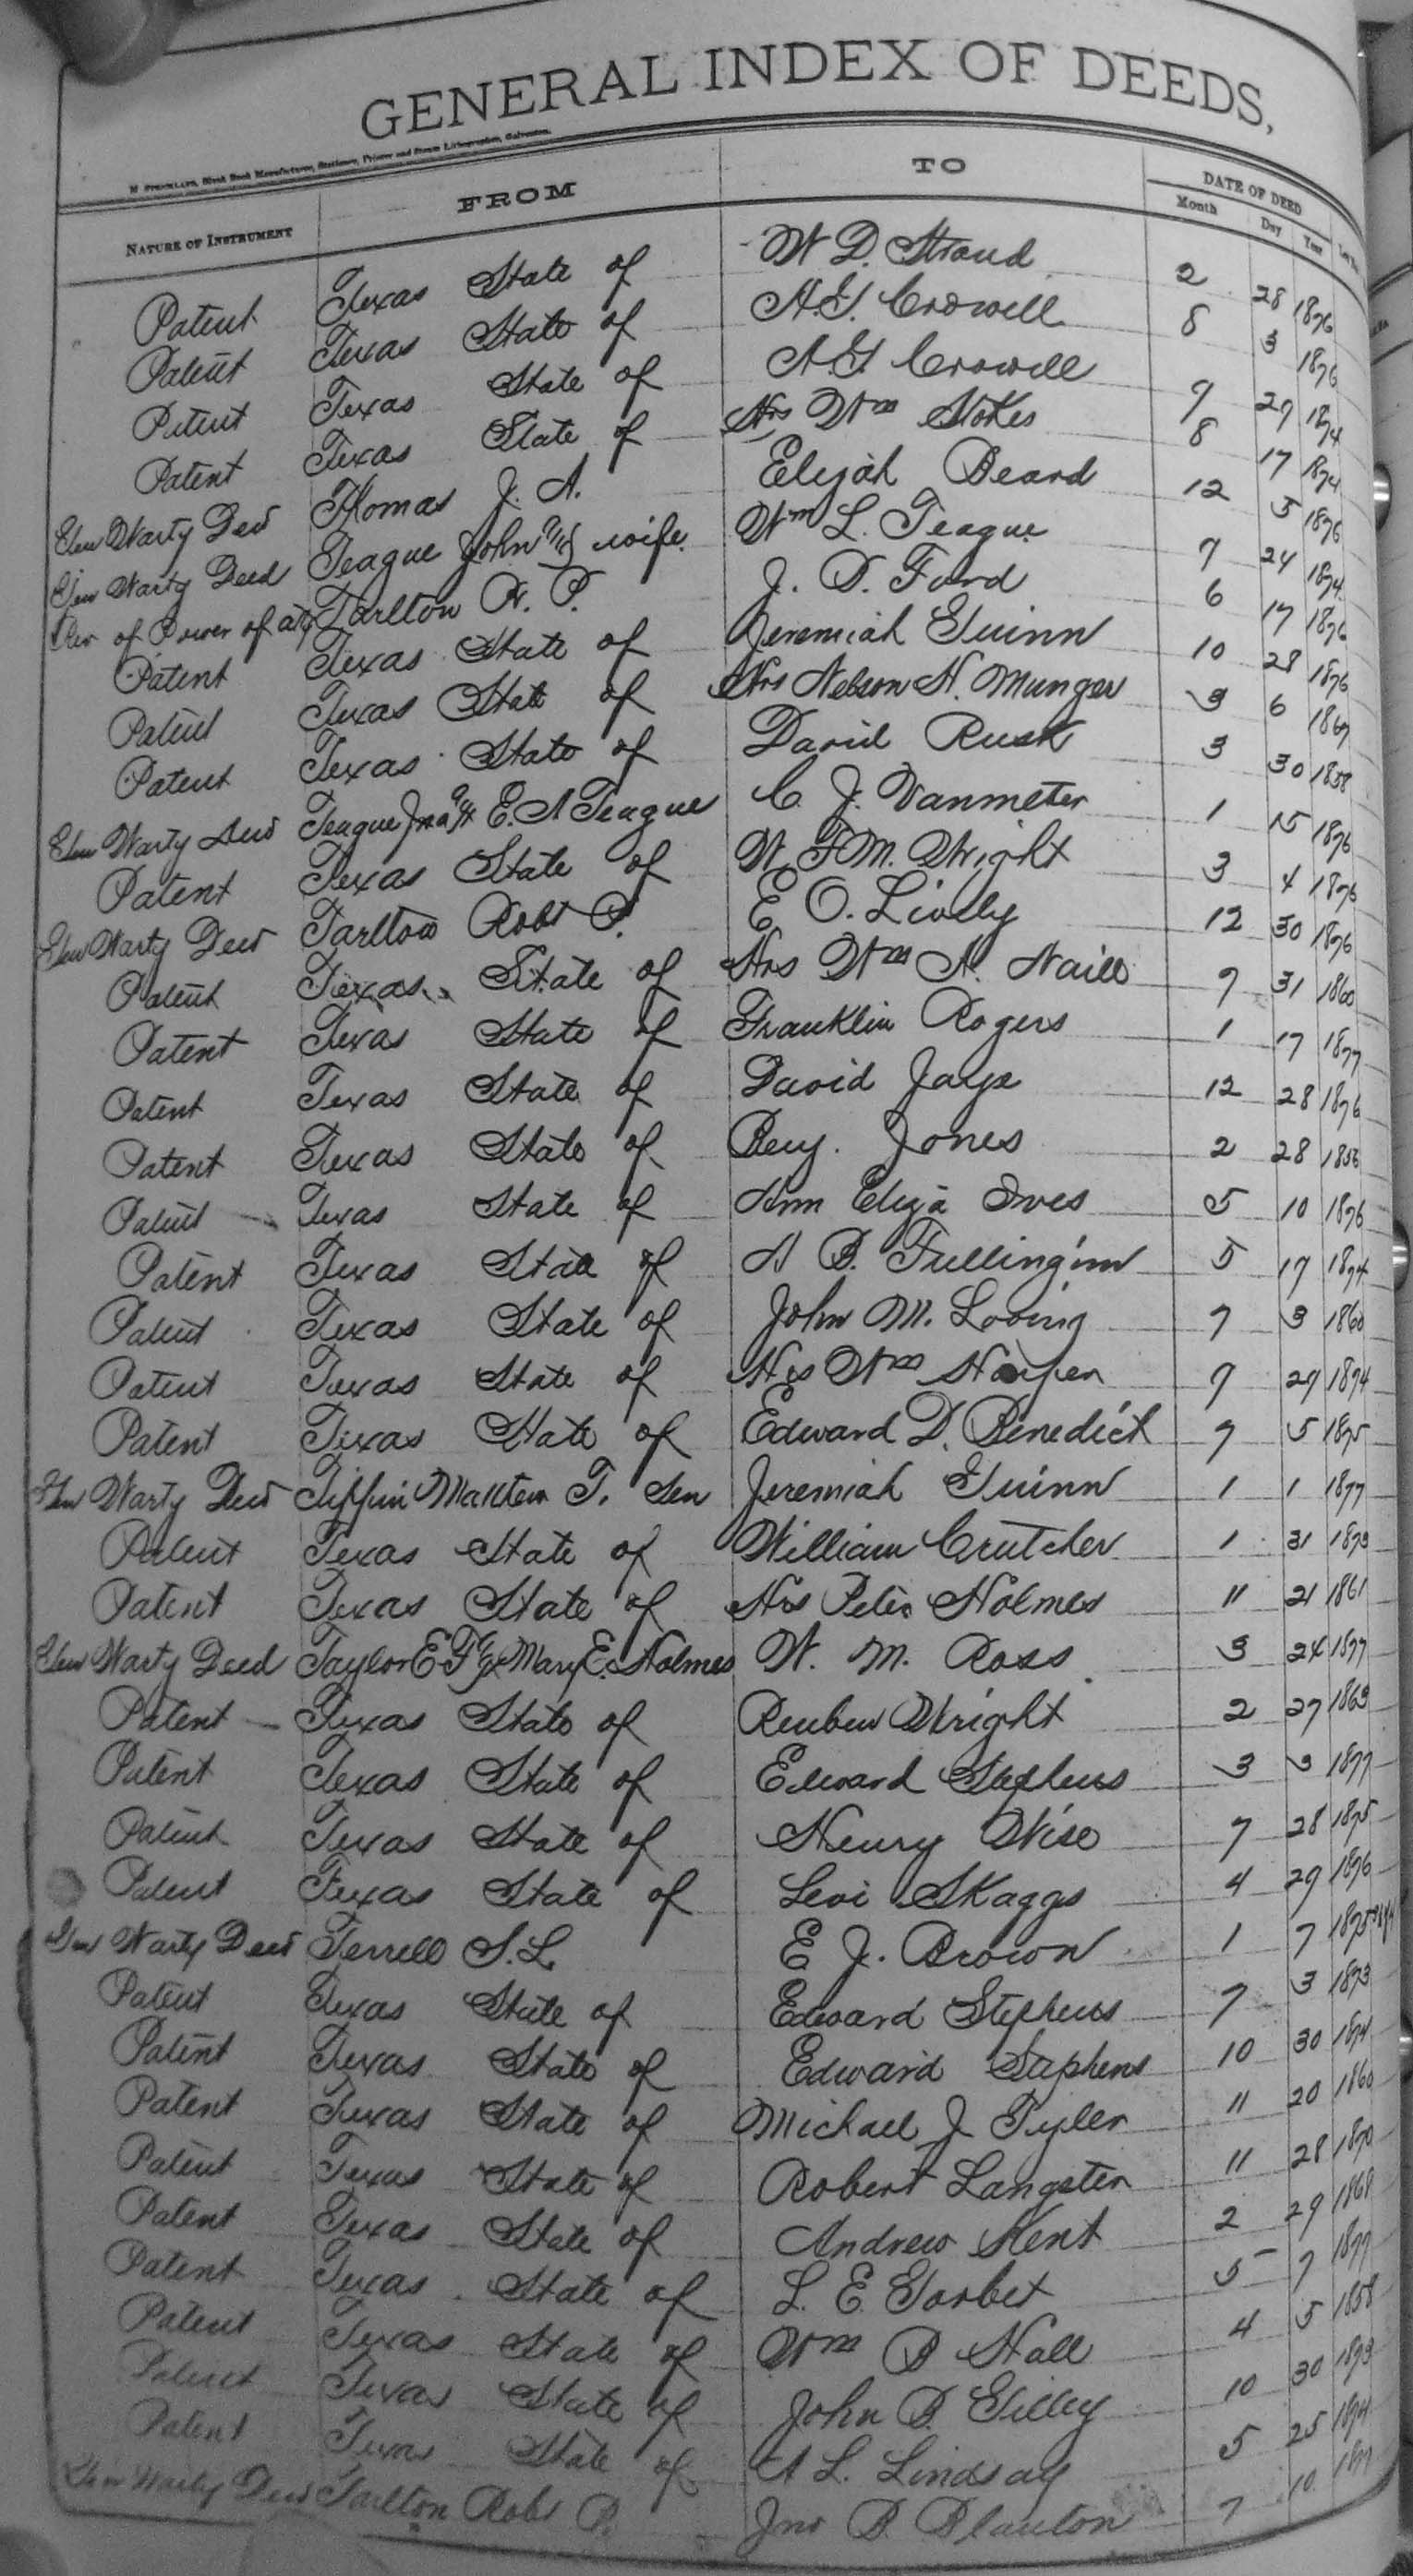 GENERAL INDEX OF DEEDS,
M. STRICKLAND, Blank Book Manufacturer, Stationer, Printer and Steam Lithographer, Galveston.
NATURE OF INSTRUMENT FROM TO DATE OF DEED
Month Day Year
Patent Texas State of W D. Stroud 2 28 1876
Patent Texas State of A. G. Crowell 8 3 1876
Patent Texas State of A G Crowell 9 29 1874
Patent Texas State of Hrs Wm Stokes 8 17 1874
Gen Warty Deed Thomas J. A. Elijah Beard 12 5 1876
Gen Warty Deed Teague John & wife Wm L. Teague 9 24 1874
Rev of Power of atty Tarlton R. P. J. D. Ford 6 17 1876
Patent Texas State of Jeremiah Guinn 10 28 1876
Patent Texas State of Hrs Nelson H. Munger 3 6 1867
Patent Texas State of David Rusk 3 30 1858
Gen Warty Deed Teague E. A Teague C. J. Vanmeter 1 15 1876
Patent Texas State of W F M. Wright 3 4 1876
Gen Warty Deed Tarlton Robt P. E O. Lively 12 30 1876
Patent Texas State of Hrs Wm A. Naill 9 31 1860
Patent Texas State of Franklin Rogers 1 17 1877
Patent Texas State of David Jays 12 28 1876
Patent Texas State of Benj. Jones 2 28 1856
Patent Texas State of Ann Eliza Ives 5 10 1876
Patent Texas State of H B. Fullingim 5 17 1874
Patent Texas State of John M. Loving 7 3 1860
Patent Texas State of Hrs Wm Harper 9 29 1874
Patent Texas State of Edward D. Benedict 7 5 1875
Gen Warty Deed Tiffin T. Sen Jeremiah Guinn 1 1 1877
Patent Texas State of William Crutcher 1 31 1873
Patent Texas State of Hrs Peter Holmes 11 21 1861
Gen Warty Deed Taylor E F & Mary E. Holmes W. M. Ross 3 24 1877
Patent Texas State of Reuben Wright 2 27 1863
Patent Texas State of Edward Stephens 3 3 1877
Patent Texas State of Henry Wise 7 28 1875
Patent Texas State of Levi Skaggs 4 29 1876
Gen Warty Deed Terrell S. L. E J. Brown 1 7 1875
Patent Texas State of Edward Stephens 7 3 1873
Patent Texas State of Edward Stephens 10 30 1874
Patent Texas State of Michael J Tyler 11 20 1860
Patent Texas State of Robert Langster 11 28 1870
Patent Texas State of Andrew Kent 2 29 1868
Patent Texas State of L. E. Gorbet 5 7 1877
Patent Texas State of Wm B Hall 4 5 1858
Patent Texas State of John B. Gilley 10 30 1873
Patent Texas State of A L. Lindsay 5 25 1874
Gen Warty Deed Tarlton Robt P. Jno B. Blanton 7 10 1877